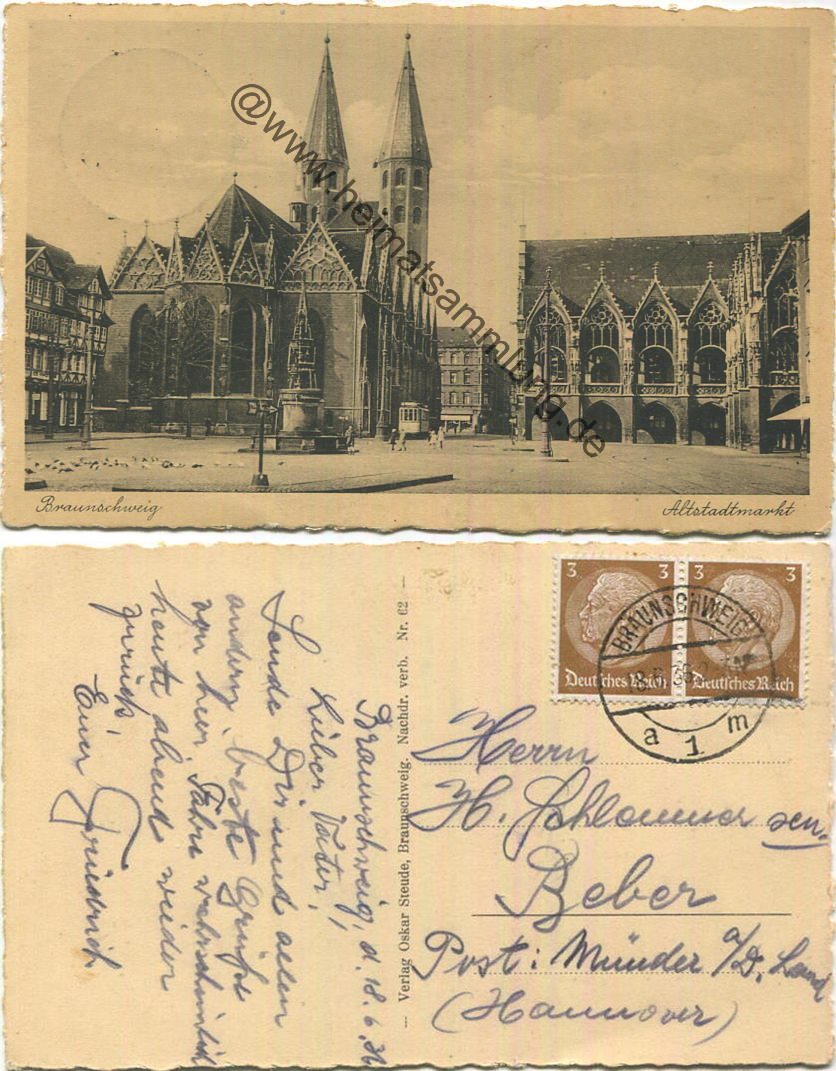 @www.heimatsammlung.de
Braunschweig
Altstadtmarkt
Braunschweig, d. 18.6.36
Lieber Vater!
Sende Dir und allen
andern beste Grüße
von hier. Fahre wahrscheinlich
heute abend wieder
zurück.
Euer Friedrich
— Verlag Oskar Steude, Braunschweig. Nachdr. verb. Nr. 62 —
3 3
Deutsches Reich
3 3
Deutsches Reich
BRAUNSCHWEIG
a 1 m
Herrn
H. Schlemmer sen.
Beber
Post: Münder a/D. Land
(Hannover)